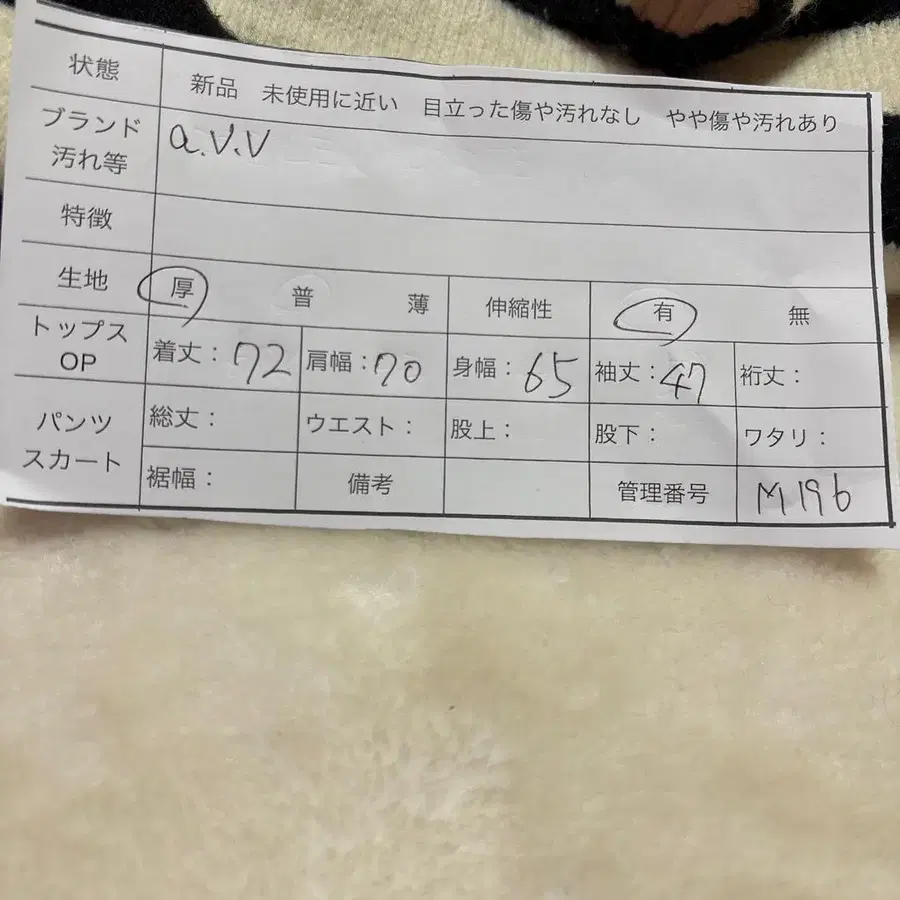 状態 新品 未使用に近い 目立った傷や汚れなし やや傷や汚れあり
ブランド a.v.v
汚れ等
特徴
生地 厚 普 薄 伸縮性 有 無
トップス OP 着丈：72 肩幅：70 身幅：65 袖丈：47 裄丈：
パンツ 総丈： ウエスト： 股上： 股下： ワタリ：
スカート 裾幅： 備考 管理番号 M196